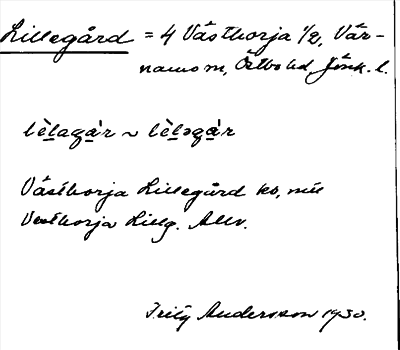 Lillegård = 4 Västhorja 1/2, Vär-
namo sn, Östbo hd, Jönk. l.
lèlagár ~ lèləgár
Västhorja Lillegård kb,
Västhorja Lillg. Allv.
Fritz Andersson 1930.